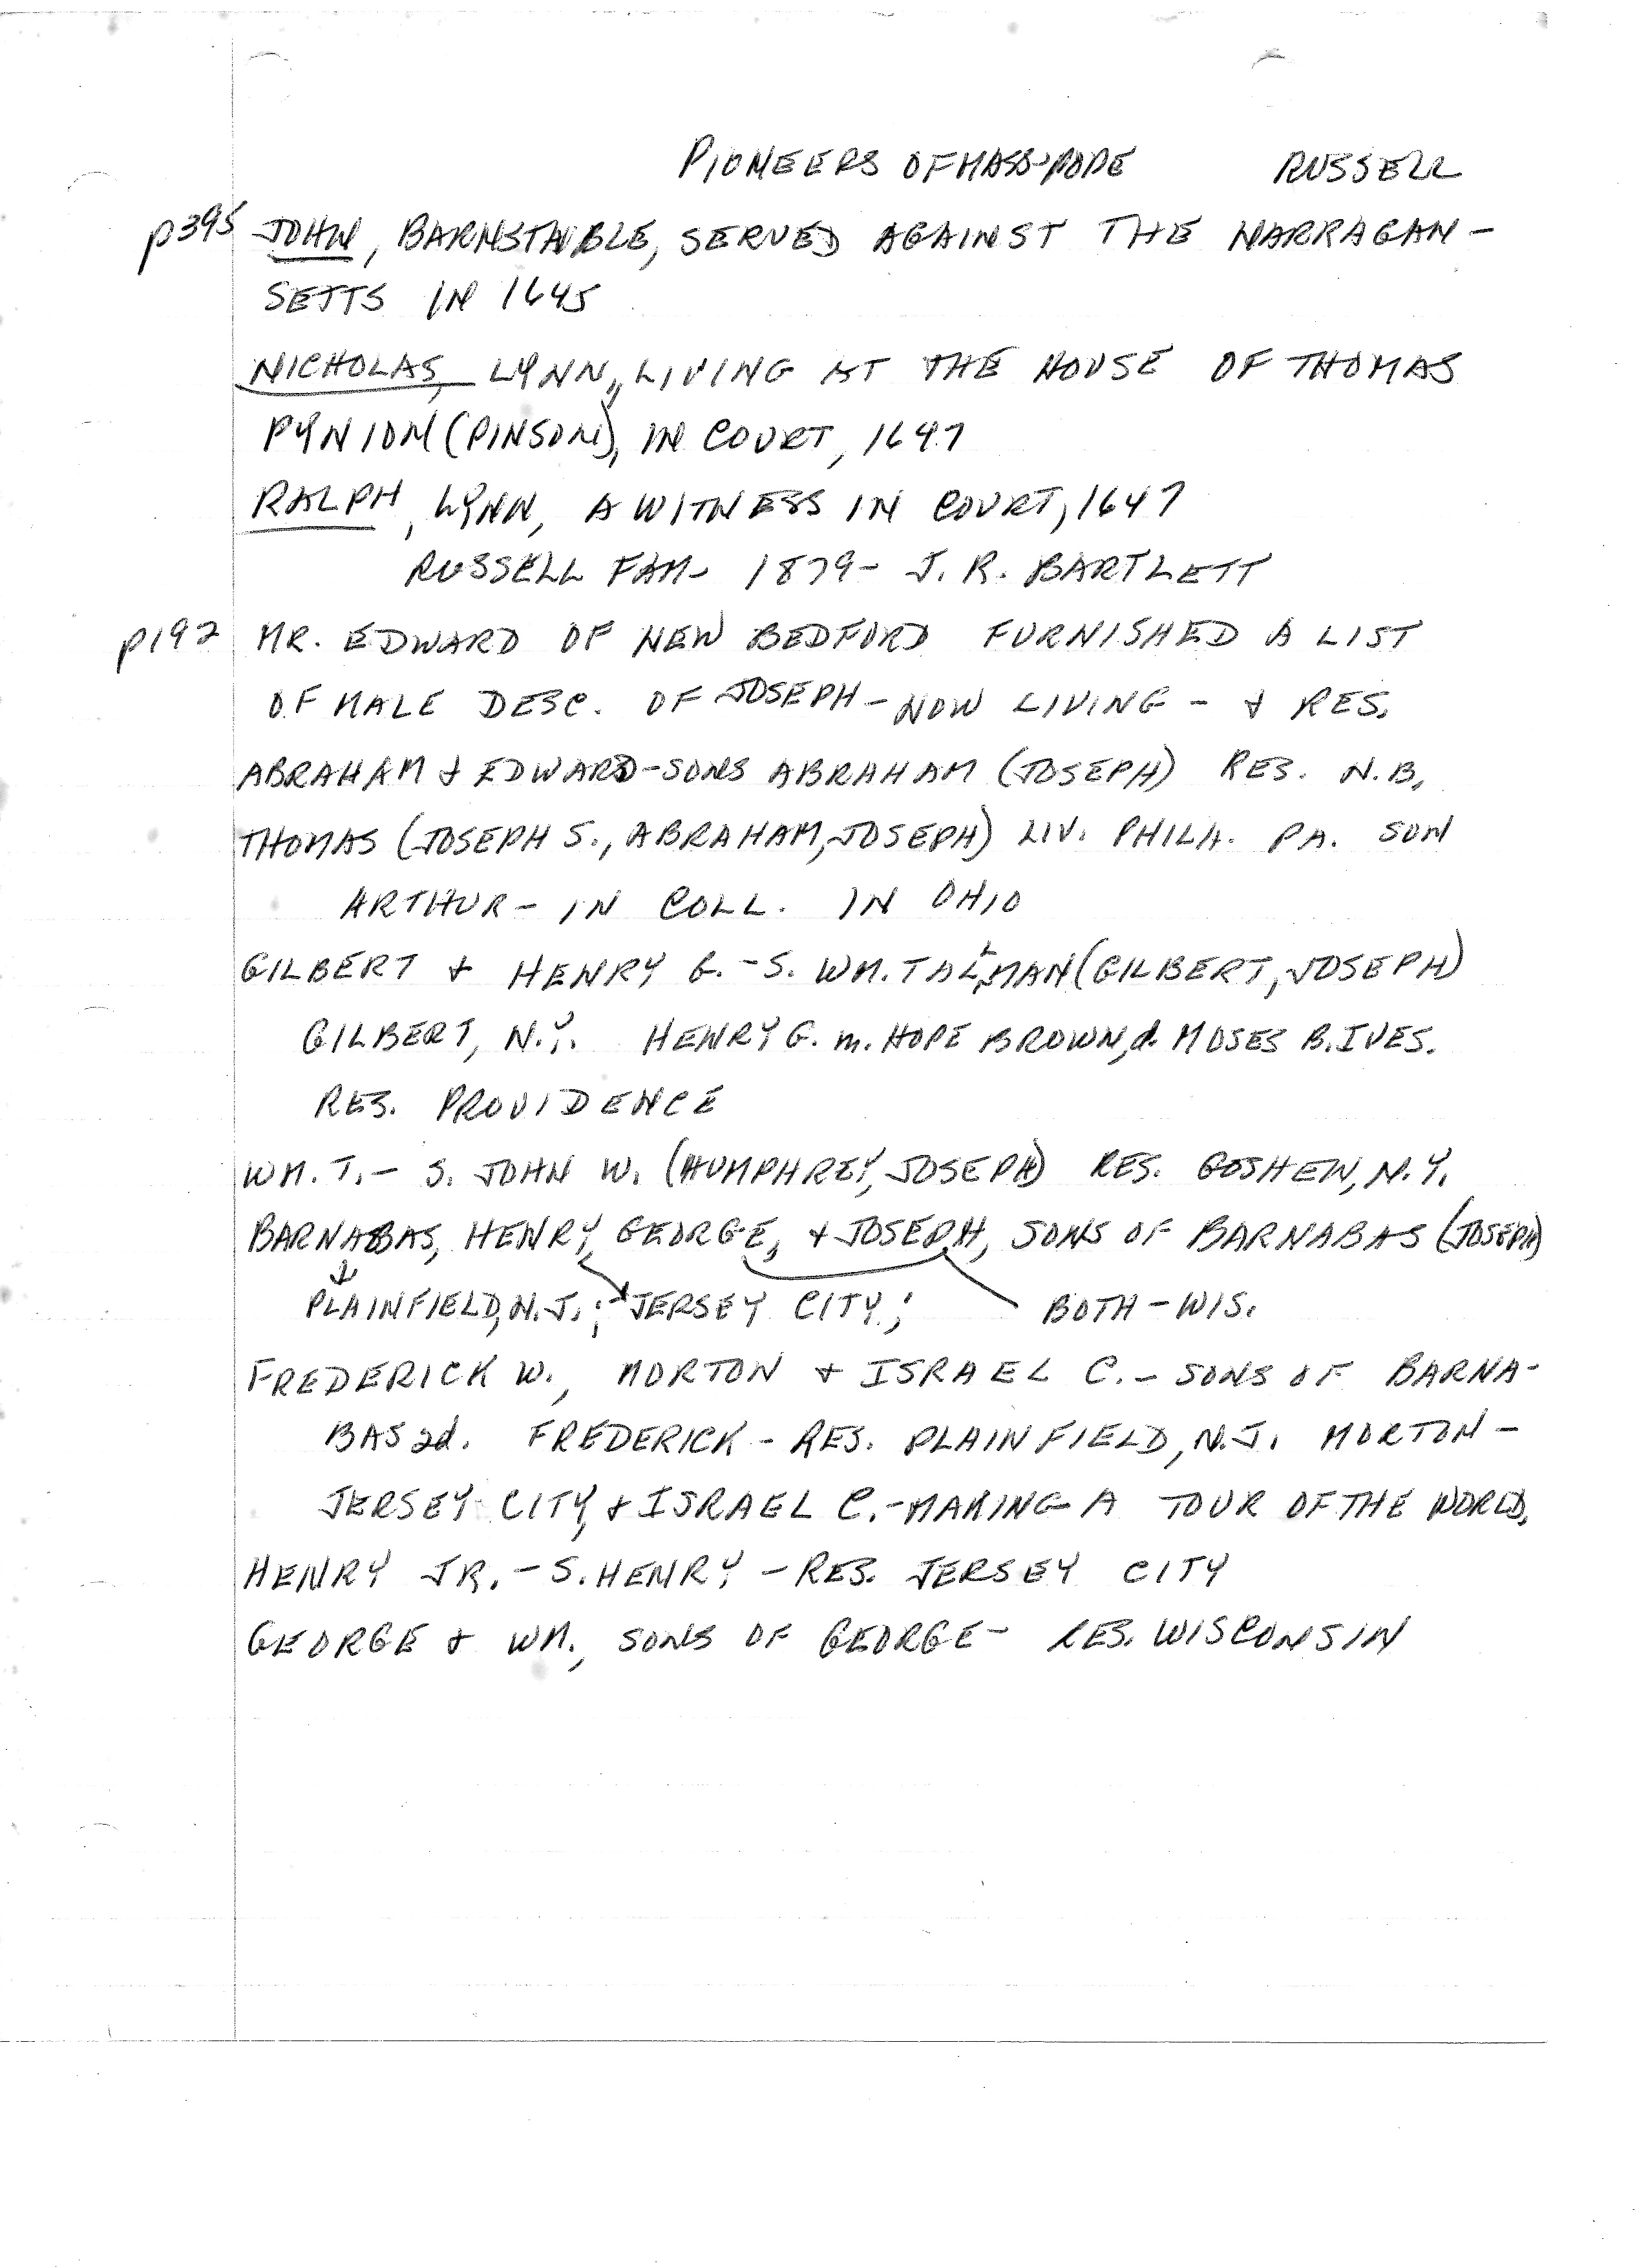 PIONEERS OF MASS-POPE RUSSELL
p395 JOHN, BARNSTABLE, SERVED AGAINST THE NARRAGAN-
SETTS IN 1645
NICHOLAS, LYNN, LIVING AT THE HOUSE OF THOMAS
PYNION (PINSON), IN COURT, 1647
RALPH, LYNN, A WITNESS IN COURT, 1647
RUSSELL FAM- 1879- J. R. BARTLETT
p192 MR. EDWARD OF NEW BEDFORD FURNISHED A LIST
OF MALE DESC. OF JOSEPH - NOW LIVING - & RES.
ABRAHAM & EDWARD-SONS ABRAHAM (JOSEPH) RES. N.B.
THOMAS (JOSEPH S., ABRAHAM, JOSEPH) LIV. PHILA. PA. SON
ARTHUR - IN COLL. IN OHIO
GILBERT & HENRY G. - S. WM. TALLMAN (GILBERT, JOSEPH)
GILBERT, N.Y. HENRY G. m. HOPE BROWN, d. MOSES B. IVES.
RES. PROVIDENCE
WM. T. - S. JOHN W. (HUMPHREY, JOSEPH) RES. GOSHEN, N.Y.
BARNABAS, HENRY, GEORGE, & JOSEPH, SONS OF BARNABAS (JOSEPH)
PLAINFIELD, N.J.; JERSEY CITY; BOTH - WIS.
FREDERICK W., MORTON & ISRAEL C. - SONS OF BARNA-
BAS 2d. FREDERICK - RES. PLAINFIELD, N.J. MORTON -
JERSEY CITY, & ISRAEL C. - MAKING A TOUR OF THE WORLD.
HENRY JR. - S. HENRY - RES. JERSEY CITY
GEORGE & WM., SONS OF GEORGE - RES. WISCONSIN